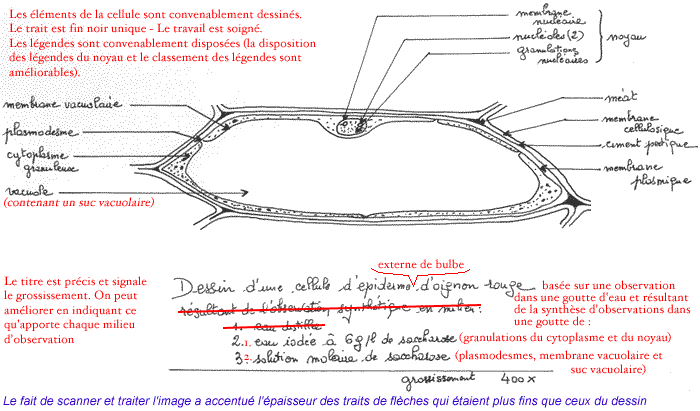 Les éléments de la cellule sont convenablement dessinés.
Le trait est fin noir unique - Le travail est soigné.
Les légendes sont convenablement disposées (la disposition
des légendes du noyau et le classement des légendes sont
améliorables).
membrane
nucléaire
nucléoles (2)
granulations
nucléaires
noyau
membrane vacuolaire
plasmodesme
cytoplasme
granuleux
vacuole
(contenant un suc vacuolaire)
méat
membrane
cellulosique
ciment pectique
membrane
plasmique
Le titre est précis et signale
le grossissement. On peut
améliorer en indiquant ce
qu'apporte chaque milieu
d'observation
externe de bulbe
Dessin d'une cellule d'épiderme d'oignon rouge
résultant de l'observation synthétique en milieu:
1. eau distillée
2. 1. eau iodée à 6 g/l de saccharose (granulations du cytoplasme et du noyau)
3. 2. solution molaire de saccharose (plasmodesmes, membrane vacuolaire et
suc vacuolaire)
basée sur une observation
dans une goutte d'eau et résultant
de la synthèse d'observations dans
une goutte de :
grossissement 400 x
Le fait de scanner et traiter l'image a accentué l'épaisseur des traits de flèches qui étaient plus fins que ceux du dessin